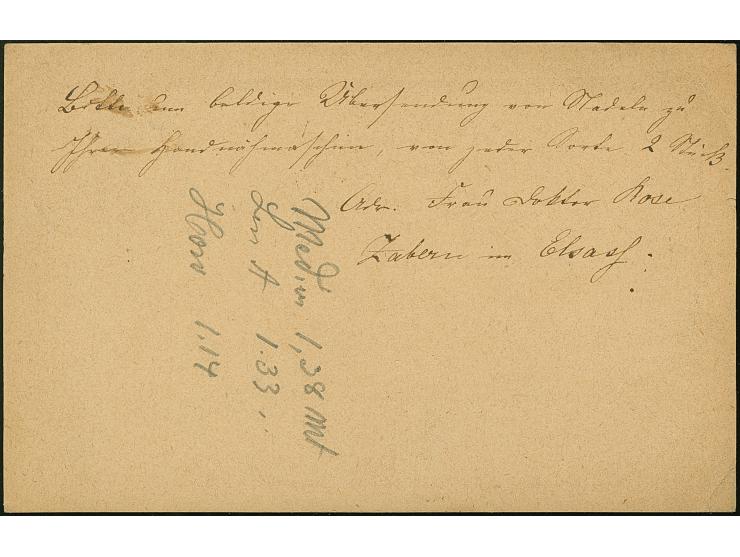 Bitte um baldige Übersendung von Nadeln zu
Ihrer Handnähmaschine, von jeder Sorte 2 Stück.
Adr. Frau Doktor Rose
Zabern im Elsass.
1,38 Mt
1.33
1.14